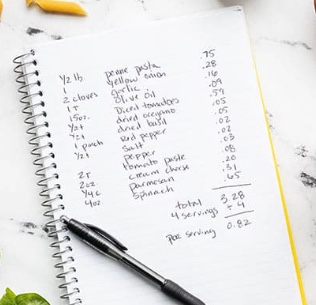 1/2 lb. penne pasta .75
1 yellow onion .28
2 cloves garlic .16
1 T olive oil .09
15oz. Diced tomatoes .59
1/2 t dried oregano .05
1/2 t dried basil .05
1 pinch red pepper .02
1/2 t salt .02
pepper .03
2 T tomato paste .08
2oz. cream cheese .20
1/4 c parmesan .31
4oz spinach .65
total 3.28
4 servings ÷ 4
per serving 0.82